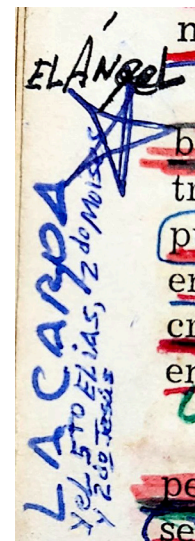 EL ÁNgeL
LA CARPA
y el 5to ELias, 2do Moises
y 2do Jesús
n
b
tr
p
er
cr
er
pe
se